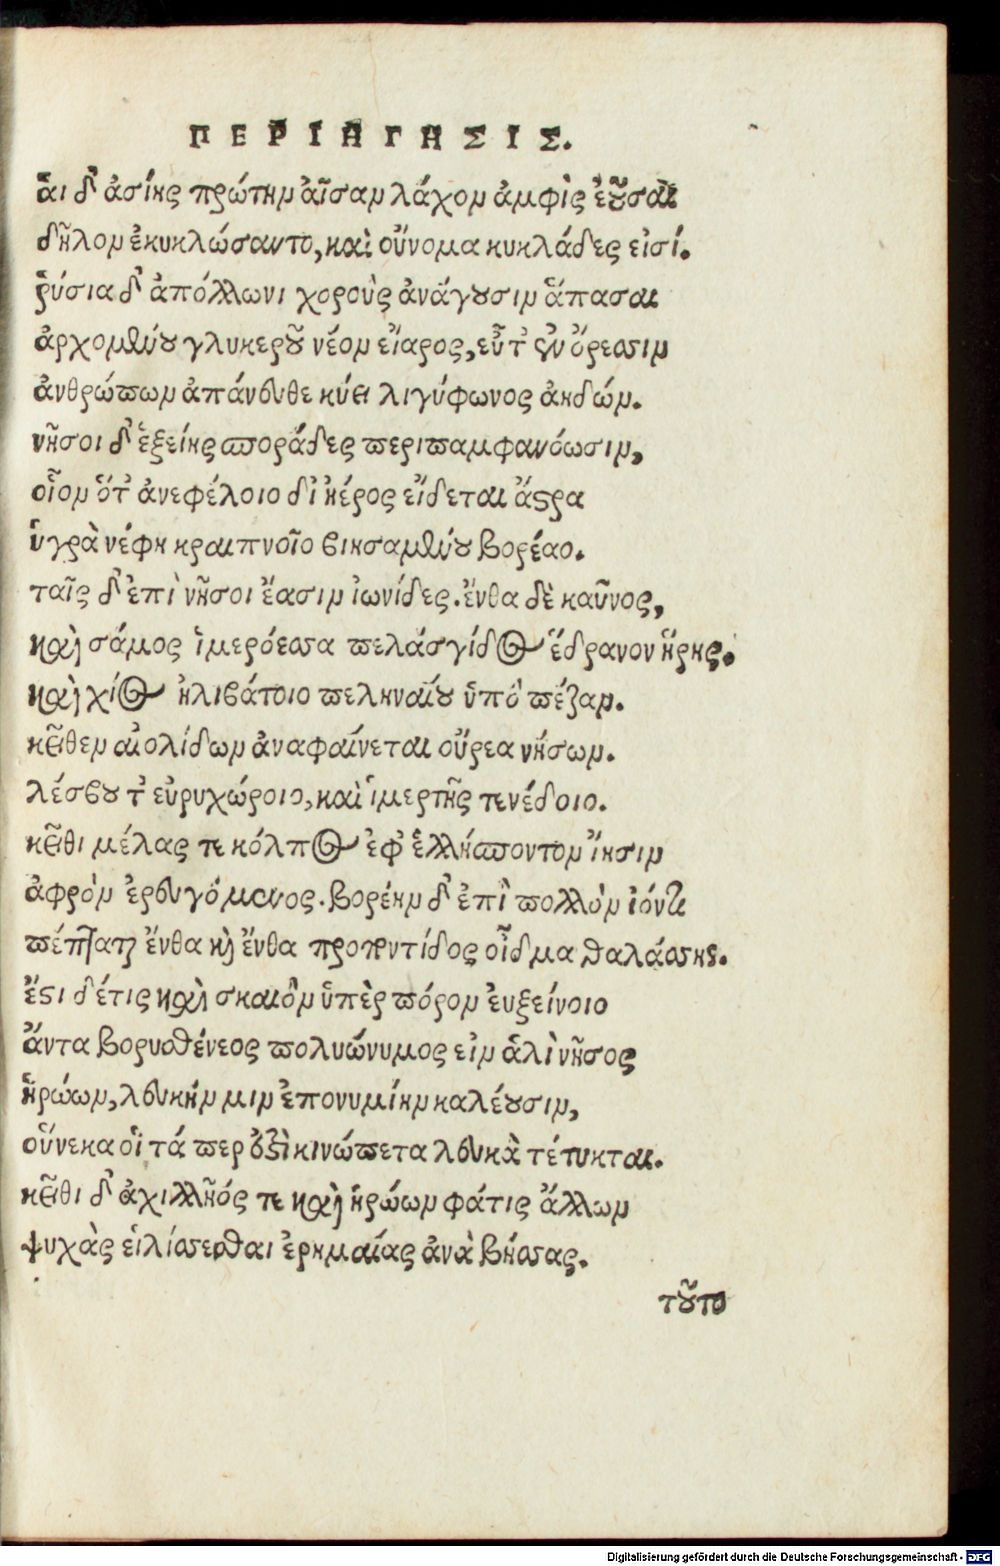 ΠΕΡΙΗΓΗΣΙΣ.
ἃι δ' ἀσίης πρώτην ἀῖσαν λάχον ἀμφὶς ἐοῦσαι
δῆλον ἐκυκλώσαντο, καὶ οὔνομα κυκλάδες εἰσί.
ῥύσια δ' ἀπόλλωνι χοροὺς ἀνάγουσιν ἅπασαι
ἀρχομένου γλυκεροῦ νέον εἴαρος, εὖτ' ἐν ὄρεσσιν
ἀνθρώπων ἀπάνευθε κύει λιγύφωνος ἀηδών.
νῆσοι δ' ἑξείης σποράδες περιπαμφανόωσιν,
οἷον ὅτ' ἀνεφέλοιο δι' ἠέρος εἴδεται ἄστρα
ὑγρὰ νέφη κραιπνοῖο βιησαμένου βορέαο.
ταῖς δ' ἐπὶ νῆσοι ἔασιν ἰωνίδες. ἔνθα δὲ καῦνος,
καὶ σάμος ἱμερόεσσα πελάσγίδος ἕδρανον ἥρης.
καὶ χίος ἠλιβάτοιο πεληναίου ὑπὸ πέζαν.
κεῖθεν αἰολίδων ἀναφαίνεται οὔρεα νήσων.
λέσβου τ' εὐρυχώροιο, καὶ ἱμερτῆς τενέδοιο.
κεῖθι μέλας τε κόλπος ἐφ' ἑλλήσποντον ἵησιν
ἀφρὸν ἐρευγόμενος. βορέην δ' ἐπὶ πολλὸν ἰόντι
πέπταται ἔνθα καὶ ἔνθα προποντίδος οἶδμα θαλάσσης.
ἔστι δέτις καὶ σκαιὸν ὑπὲρ πόρον ἐυξείνοιο
ἄντα βορυσθένεος πολυώνυμος εἰν ἁλὶ νῆσος
ἡρώων, λευκήν μιν ἐπονυμίην καλέουσιν,
οὕνεκα οἱ τά περ ὀξὶ κινώπετα λευκὰ τέτυκται.
κεῖθι δ' ἀχιλλῆός τε καὶ ἡρώων φάτις ἄλλων
ψυχὰς εἱλίσσεσθαι ἐρημαίας ἀνὰ βήσσας.
τοῦτο
Digitalisierung gefördert durch die Deutsche Forschungsgemeinschaft - DFG